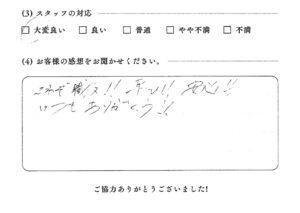 (3) スタッフの対応
☑大変良い □良い □普通 □やや不満 □不満
(4) お客様の感想をお聞かせください。
これぞ職人!! 早い!! 安心!!
いつもありがとう!!
ご協力ありがとうございました!